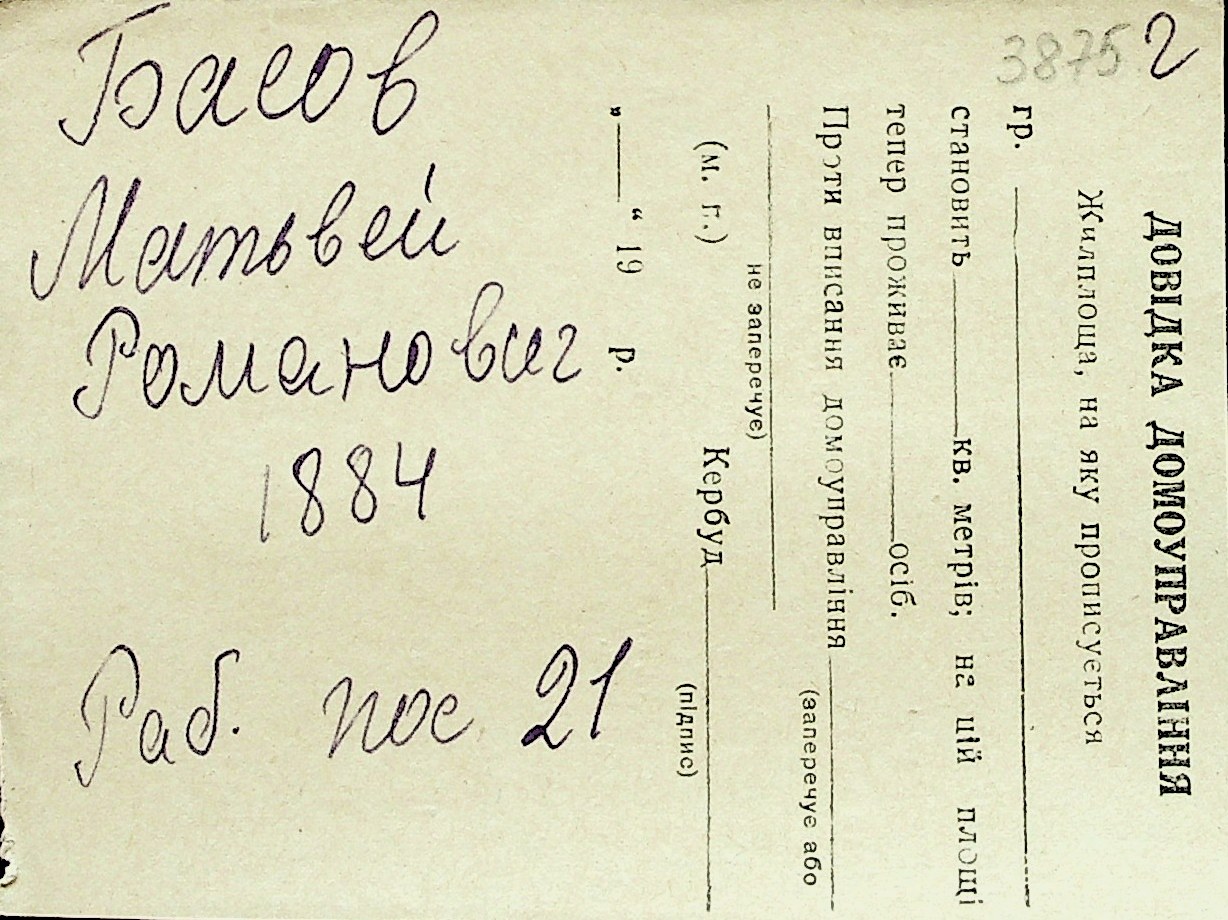 3875 2
Басов
Матьвей
Романович
1884
Раб. пос 21
ДОВІДКА ДОМОУПРАВЛІННЯ
Жилплоща, на яку прописується
гр.
становить кв. метрів; на цій площі
тепер проживає осіб.
Проти вписання домоуправління
(заперечує або
не заперечує)
(м. п.) Кербуд
(підпис)
„ “ 19 р.